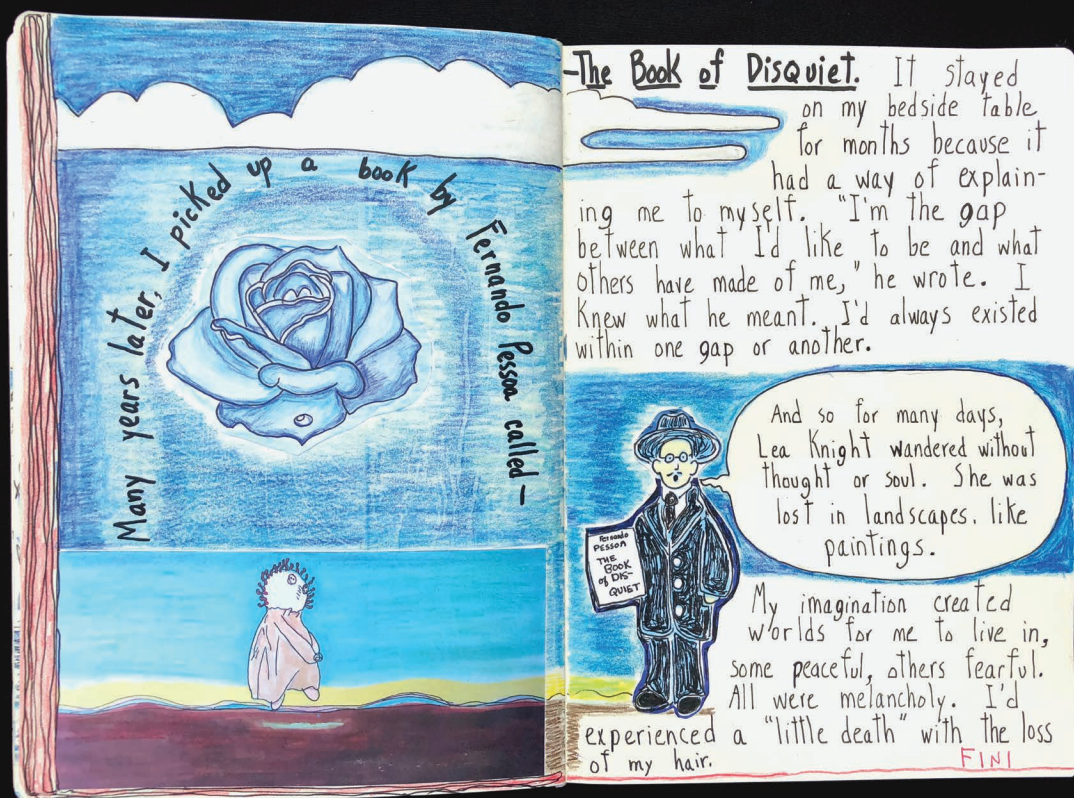 Many years later, I picked up a book by Fernando Pessoa called—
—The Book of Disquiet. It stayed
on my bedside table
for months because it
had a way of explain-
ing me to myself. "I'm the gap
between what I'd like to be and what
others have made of me," he wrote. I
knew what he meant. I'd always existed
within one gap or another.
And so for many days,
Lea Knight wandered without
thought or soul. She was
lost in landscapes. like
paintings.
Fernando
PESSOA
THE
BOOK
of DIS-
QUIET
My imagination created
worlds for me to live in,
some peaceful, others fearful.
All were melancholy. I'd
experienced a "little death" with the loss
of my hair.
FINI